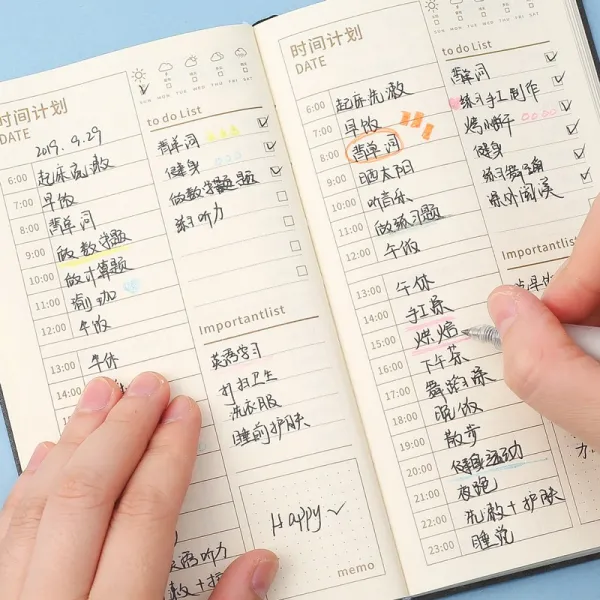 时间计划
DATE
2019.9.29
6:00 起床洗漱
7:00 早饭
8:00 背单词
9:00 做数学题
10:00 做计算题
11:00 运动
12:00 午饭
13:00 午休
14:00
SUN MON TUE WED THU FRI SAT
to do List
背单词
健身
做数学题
练习听力
Importantlist
英语学习
打扫卫生
洗衣服
睡前护肤
Happy
memo
英语听力
洗漱+护
时间计划
DATE
6:00 起床洗漱
7:00 早饭
8:00 背单词
9:00 晒太阳
10:00 听音乐
11:00 做练习题
12:00 午饭
13:00 午休
14:00 手工课
15:00 烘焙
16:00 下午茶
17:00 舞蹈课
18:00 晚饭
19:00 散步
20:00 健身运动
21:00 夜跑
22:00 洗漱+护肤
23:00 睡觉
SUN MON TUE WED THU FRI SAT
to do List
背单词
练习手工制作
烤饼干
健身
练习舞蹈
课外阅读
Importantlist